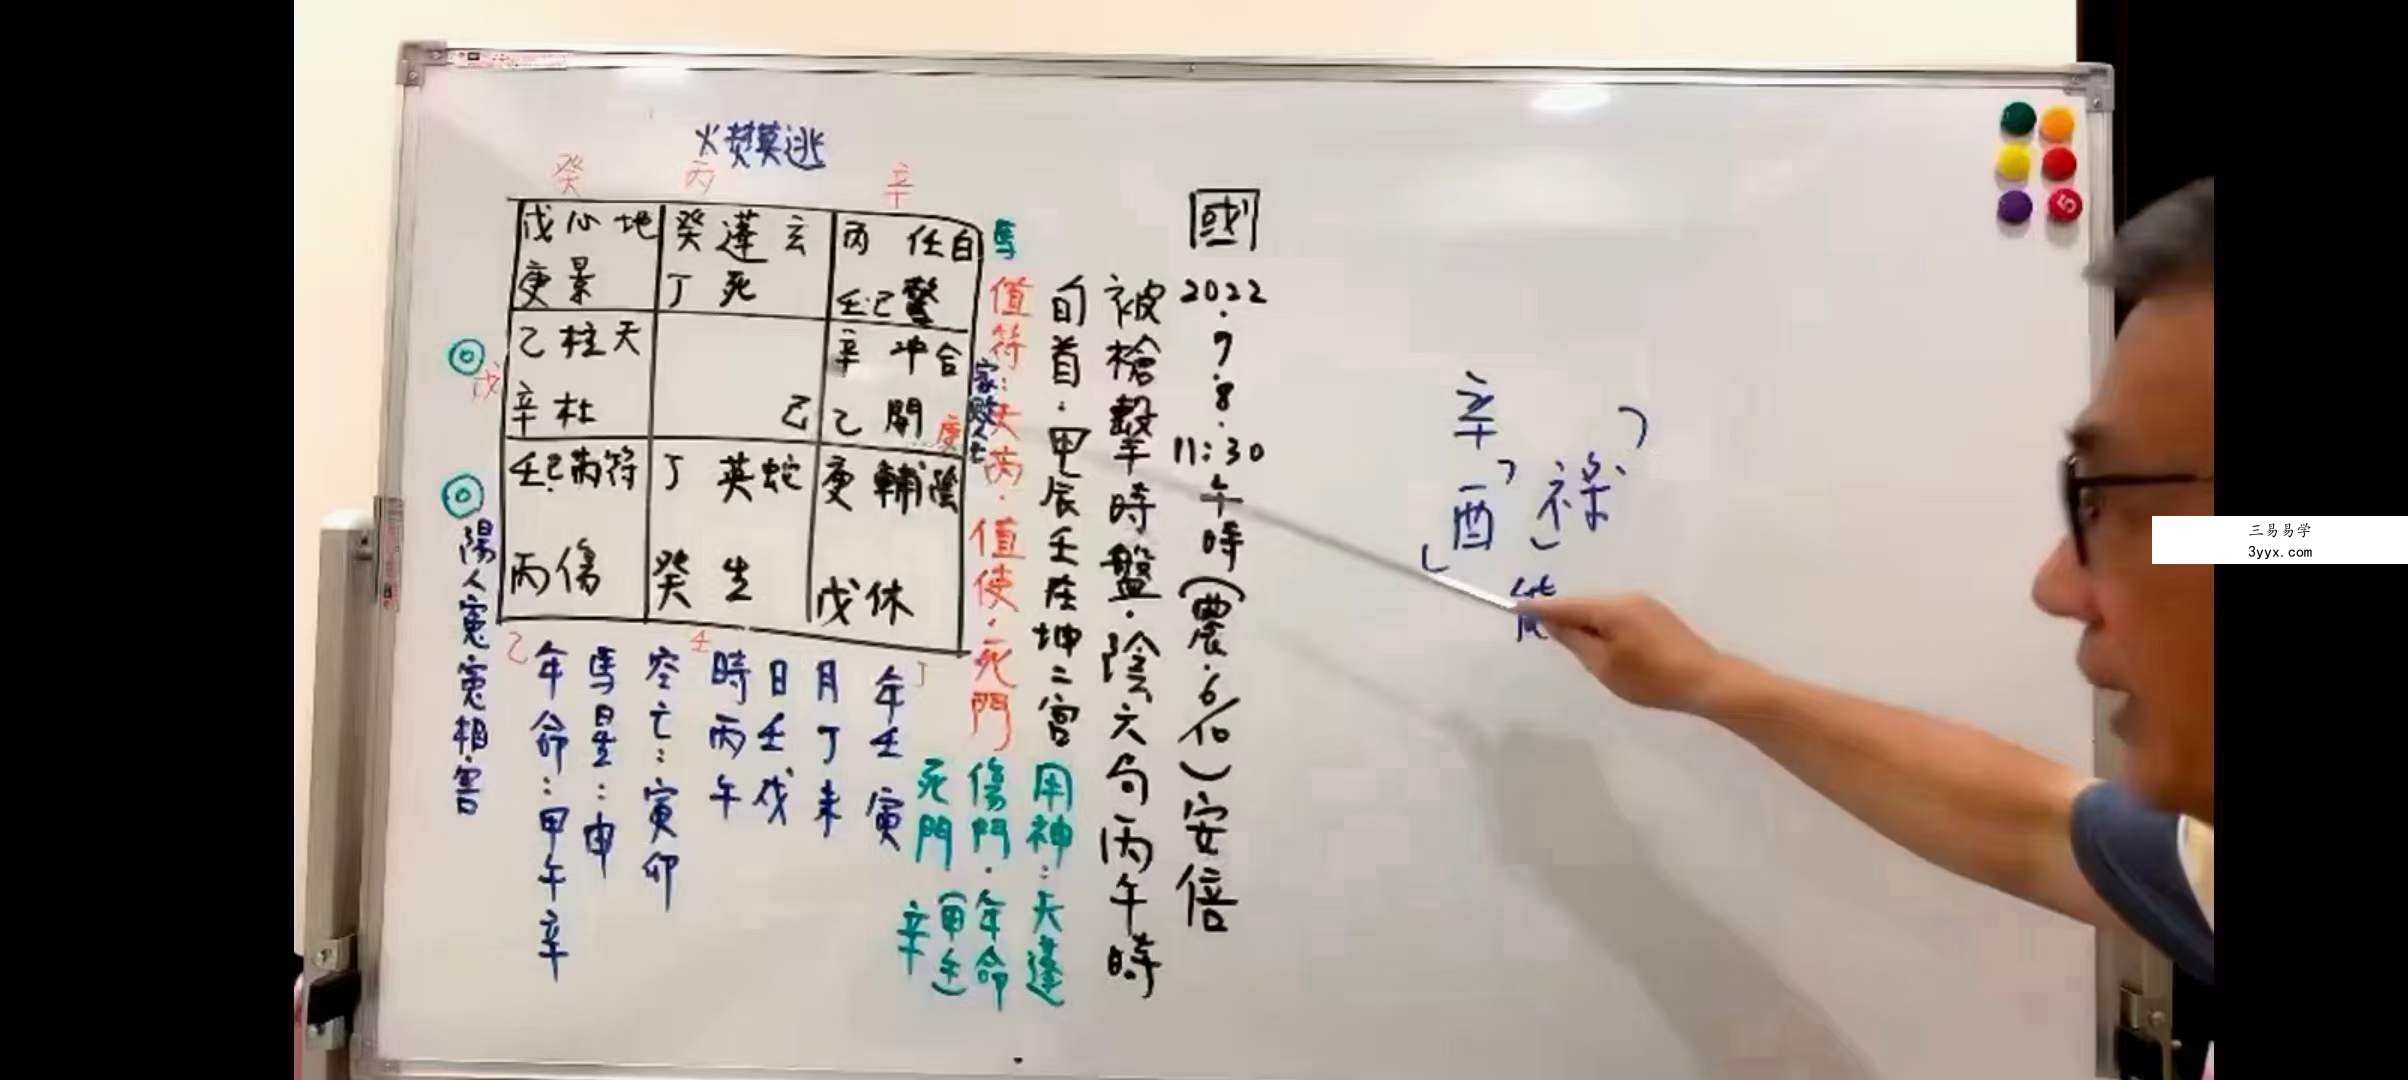 火焚莫逃
癸 丙 辛
戊心地 癸蓬玄 丙任白 馬
庚景 丁死 壬己驚
乙柱天 辛冲合
戊
辛杜 己 乙開 庚
壬己芮符 丁英蛇 庚輔陰
丙傷 癸生 戊休
乙 壬 丁
國
2022.7.8.11:30午時(農.6/10)安倍
被槍擊時盤.陰六句丙午時
旬首.甲辰壬在坤二宮
值符:天芮.值使.死門
用神:天蓬
傷門.年命
死門.(甲午)
辛
年壬寅
月丁未
日壬戌
時丙午
空亡:寅卯
馬星:申
年命:甲午辛
陽人冤冤相害
辛
酉 祿
三易易学
3yyx.com
5